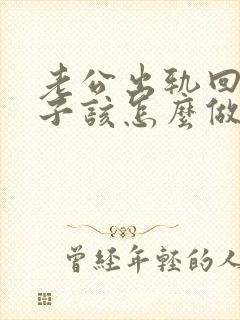 老公出軌回
子該怎麼做
曾經年輕的人